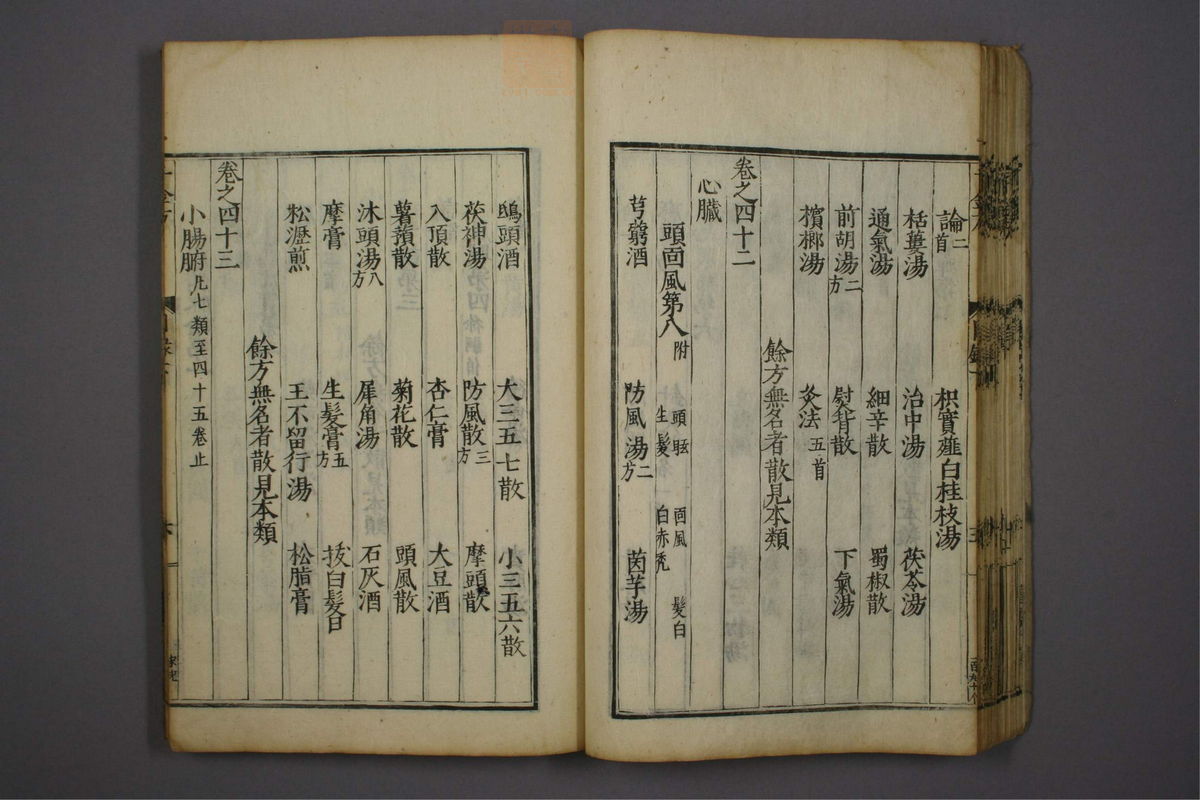 論二首 枳實薤白桂枝湯
栝蔞湯 治中湯 茯苓湯
通氣湯 細辛散 蜀椒散
前胡湯二方 熨背散 下氣湯
檳榔湯 灸法五首
餘方無名者散見本類
卷之四十二
心臟
頭面風第八附 頭眩 面風 髪白 生髮 白赤禿
芎藭酒 防風湯二方 茵芋湯
鴟頭酒 大三五七散 小三五六散
茯神湯 防風散三方 摩頭散
入頂散 杏仁膏 大豆酒
薯蕷散 菊花散 頭風散
沐頭湯八方 犀角湯 石灰酒
摩膏 生髮膏五方 拔白髮日
松瀝煎 王不留行湯 松脂膏
餘方無名者散見本類
卷之四十三
小腸腑凡七類至四十五卷止